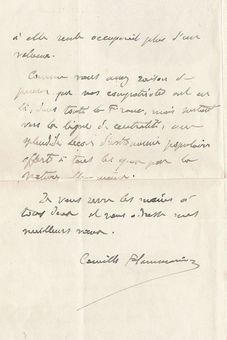 à elle seule occuperait plus d'un
volume.
Comme vous avez raison de
penser que nos compatriotes ont eu
là, dans toute la France, mais surtout
vers la ligne de centralité, une
splendide leçon d'astronomie populaire
offerte à tous les yeux par la
nature elle-même.
Je vous serre les mains à
tous deux et vous adresse mes
meilleurs vœux.
Camille Flammarion